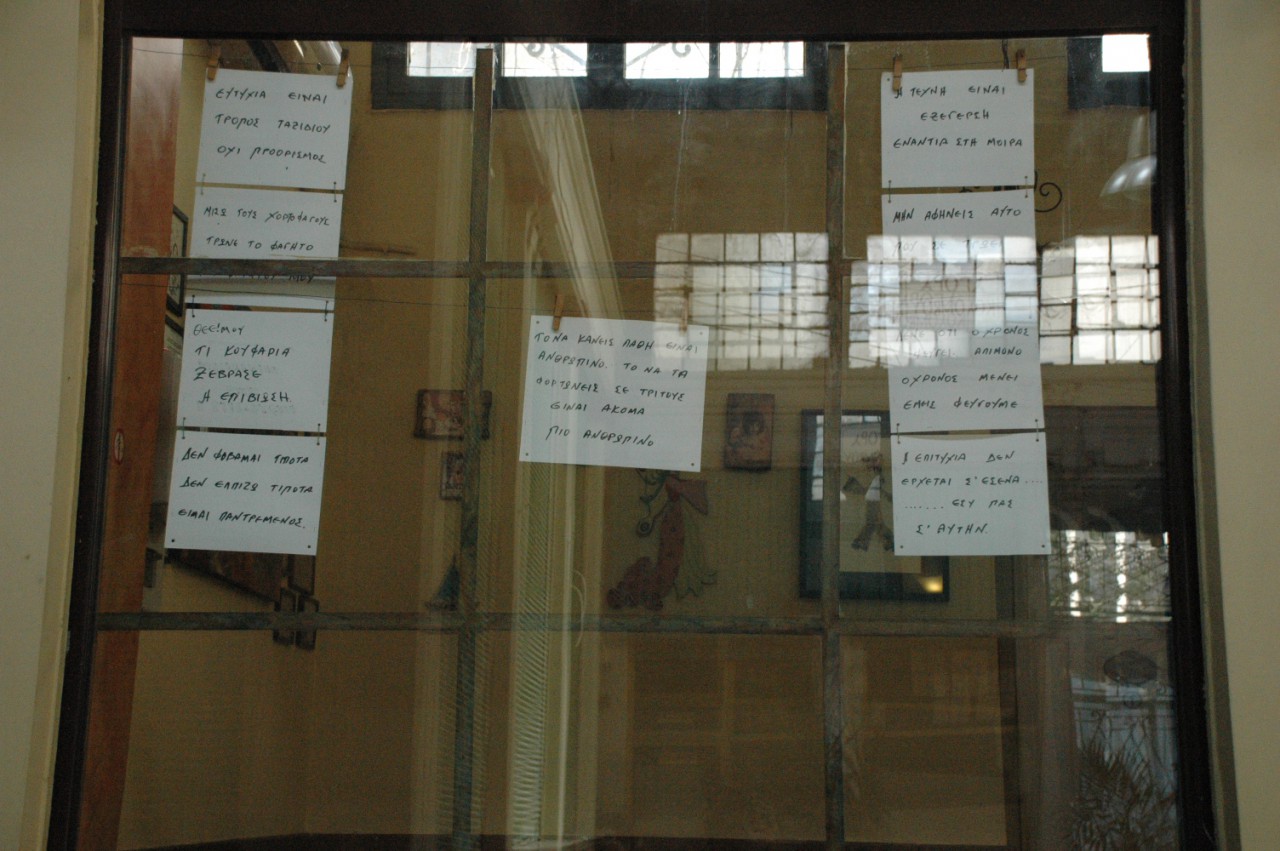 ΕΥΤΥΧΙΑ ΕΙΝΑΙ
ΤΡΟΠΟΣ ΤΑΞΙΔΙΟΥ
ΟΧΙ ΠΡΟΟΡΙΣΜΟΣ
ΜΙΣΩ ΤΟΥΣ ΧΟΡΤΟΦΑΓΟΥΣ
ΤΡΩΝΕ ΤΟ ΦΑΓΗΤΟ
ΘΕΕ! ΜΟΥ
ΤΙ ΚΟΥΦΑΡΙΑ
ΞΕΒΡΑΣΕ
Η ΕΠΙΒΙΩΣΗ
ΔΕΝ ΦΟΒΑΜΑΙ ΤΙΠΟΤΑ
ΔΕΝ ΕΛΠΙΖΩ ΤΙΠΟΤΑ
ΕΙΜΑΙ ΠΑΝΤΡΕΜΕΝΟΣ.
ΤΟ ΝΑ ΚΑΝΕΙΣ ΛΑΘΗ ΕΙΝΑΙ
ΑΝΘΡΩΠΙΝΟ. ΤΟ ΝΑ ΤΑ
ΦΟΡΤΩΝΕΙΣ ΣΕ ΤΡΙΤΟΥΣ
ΕΙΝΑΙ ΑΚΟΜΑ
ΠΙΟ ΑΝΘΡΩΠΙΝΟ
Η ΤΕΧΝΗ ΕΙΝΑΙ
ΕΞΕΓΕΡΣΗ
ΕΝΑΝΤΙΑ ΣΤΗ ΜΟΙΡΑ
ΜΗΝ ΑΦΗΝΕΙΣ ΑΥΤΟ
ΠΟΥ ΣΕ
ΟΤΙ Ο ΧΡΟΝΟΣ
ΑΛΙΜΟΝΟ
Ο ΧΡΟΝΟΣ ΜΕΝΕΙ
ΕΜΕΙΣ ΦΕΥΓΟΥΜΕ
Η ΕΠΙΤΥΧΙΑ ΔΕΝ
ΕΡΧΕΤΑΙ Σ' ΕΣΕΝΑ ....
....... ΕΣΥ ΠΑΣ
Σ' ΑΥΤΗΝ.